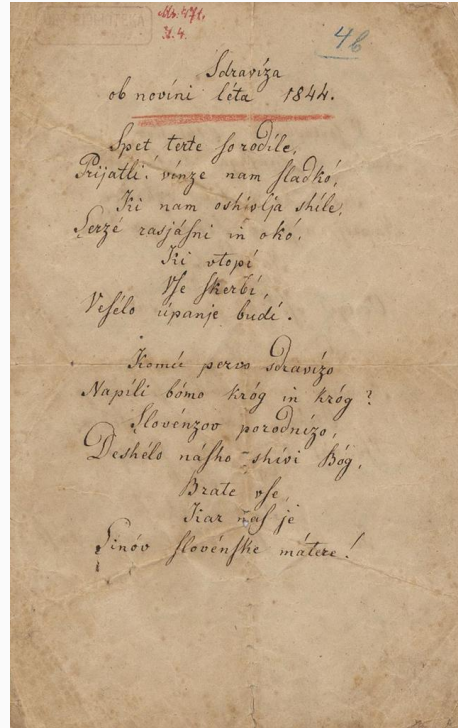 Ms. 471.
N. 4.
4b
Sdravíza
ob novíni léta 1844.
Spet terte so rodíle,
Prijatli! vínze nam sladkó,
Ki nam oshívlja shíle,
Serzé rasjásni in okó,
Ki vtopí
Vse skerbí,
Vesélo úpanje budí.
Komú pervo sdravízo
Napíli bómo króg in króg?
Slovénzov porodnízo,
Deshélo násho - shívi Bóg,
Brate vse,
Kar naſ je
Sinóv slovénske mátere!